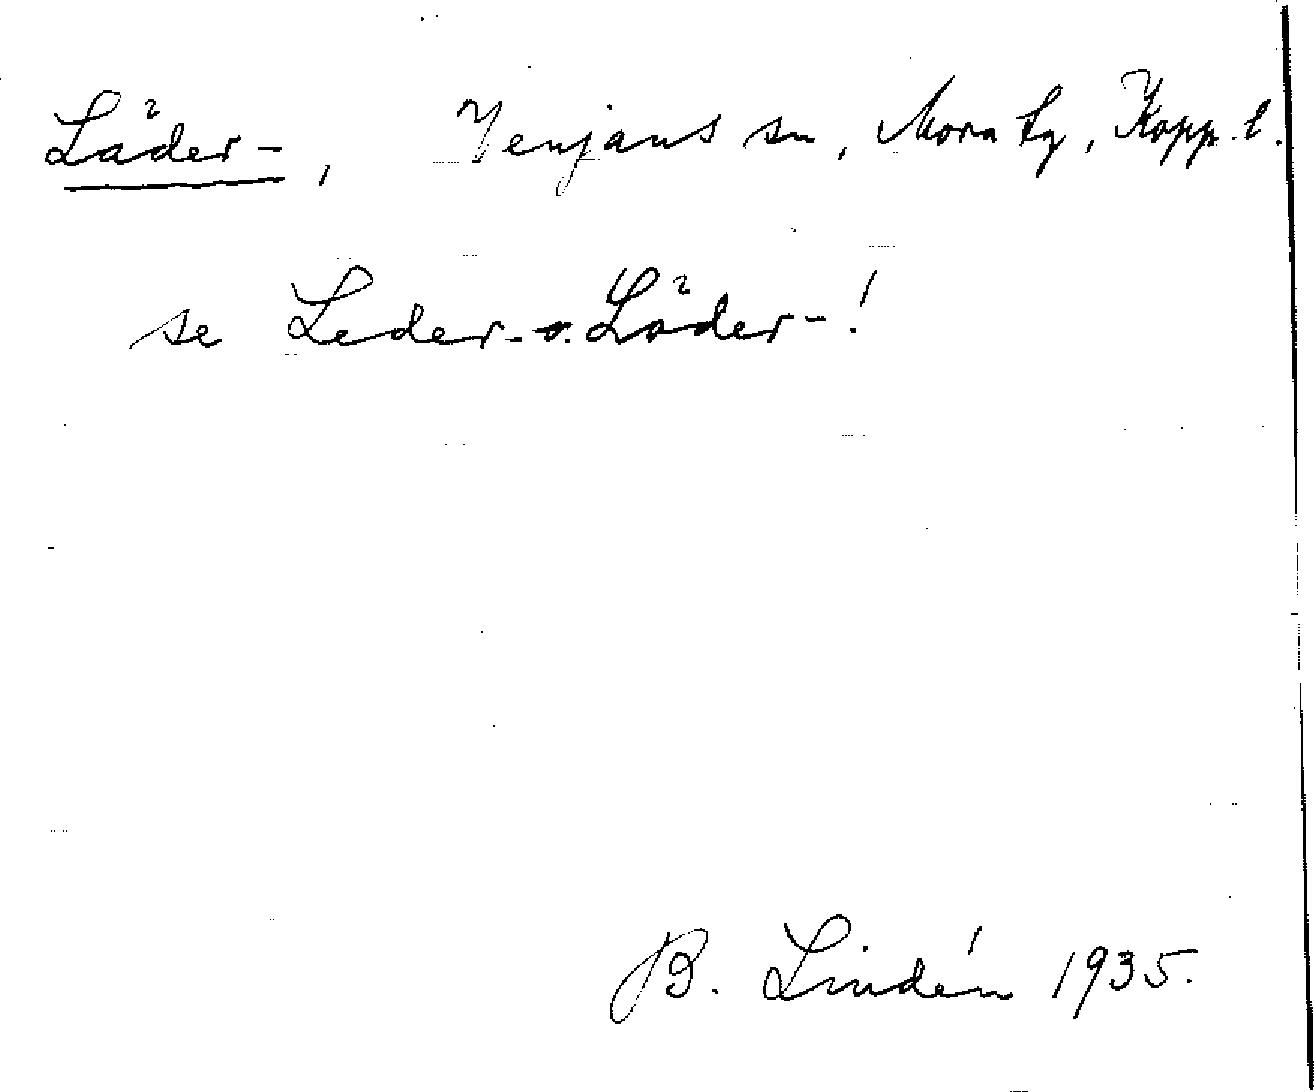 Läder-, Venjans sn, Mora tg, Kopp. l.
se Leder- o. Löder-!
B. Lindén 1935.